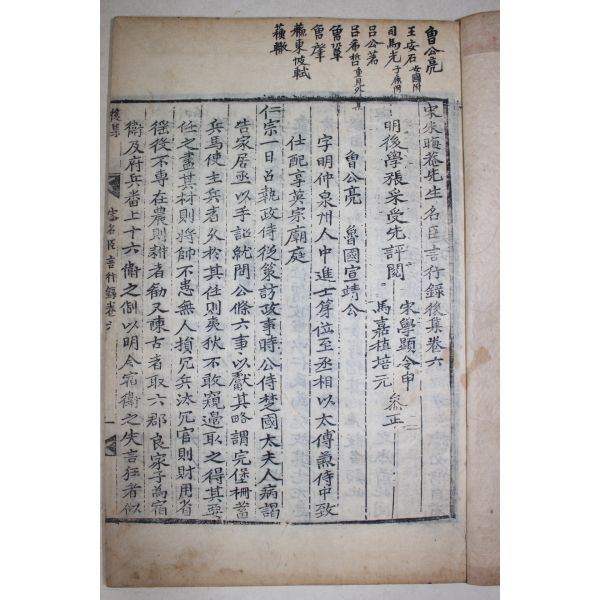 曾公亮
王安石 安國附
司馬光 子康附
呂公著
呂希哲
曾鞏
曾肇
蘇東坡軾
蘇轍
宋朱晦菴先生名臣言行錄後集卷六
明後學張采受先評閱
宋學顯令申
馬嘉植培元 叅正
曾公亮 魯國宣靖公
字明仲泉州人中進士等位至丞相以太傅兼侍中致
仕配享英宗廟庭
仁宗一日召執政侍從策訪政事時公侍楚國太夫人病謁
告家居亟以手詔就問公條六事以獻其略謂完堡柵蓄
兵馬使主兵者久於其任則夷狄不敢窺邊取之得其要
任之盡其材則將帥不患無人損冗兵汰冗官則財用省
徭役不專在農則耕者勸又陳古者取六郡良家子為宿
衛及府兵番上十六衛之制以明今宿衛之失言狂者似
後集
宋名臣言行錄卷六